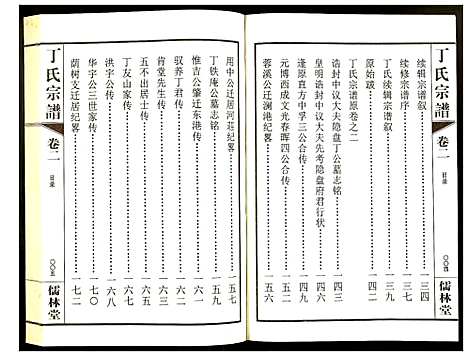 丁氏宗譜
卷二
目录
〇〇四
儒林堂
续辑宗谱叙……一三四
续修宗谱序……一三七
丁氏续辑宗谱叙……一三九
原始跋……一四二
丁氏宗谱原卷之二
诰封中议大夫隐盘丁公墓志铭……一四三
皇明诰封中议大夫先考隐盘府君行状……一四四
逢原直方中孚三公合传……一四八
元博西成文光春晖四公合传……一五一
蓉溪公迁澜港纪畧……一五六
用中公迁居河荘纪畧……一五七
丁铁庵公墓志铭……一五九
惟吉公肇迁东港传……一六一
驭荞丁君传……
肯堂堂先生传……
五不出居士传……一六五
丁友山家传……
洪宇公传……一六八
华宇公三世家传……一七〇
荫树支迁居纪畧……一七二
丁氏宗譜
卷二
目录
〇〇五
儒林堂